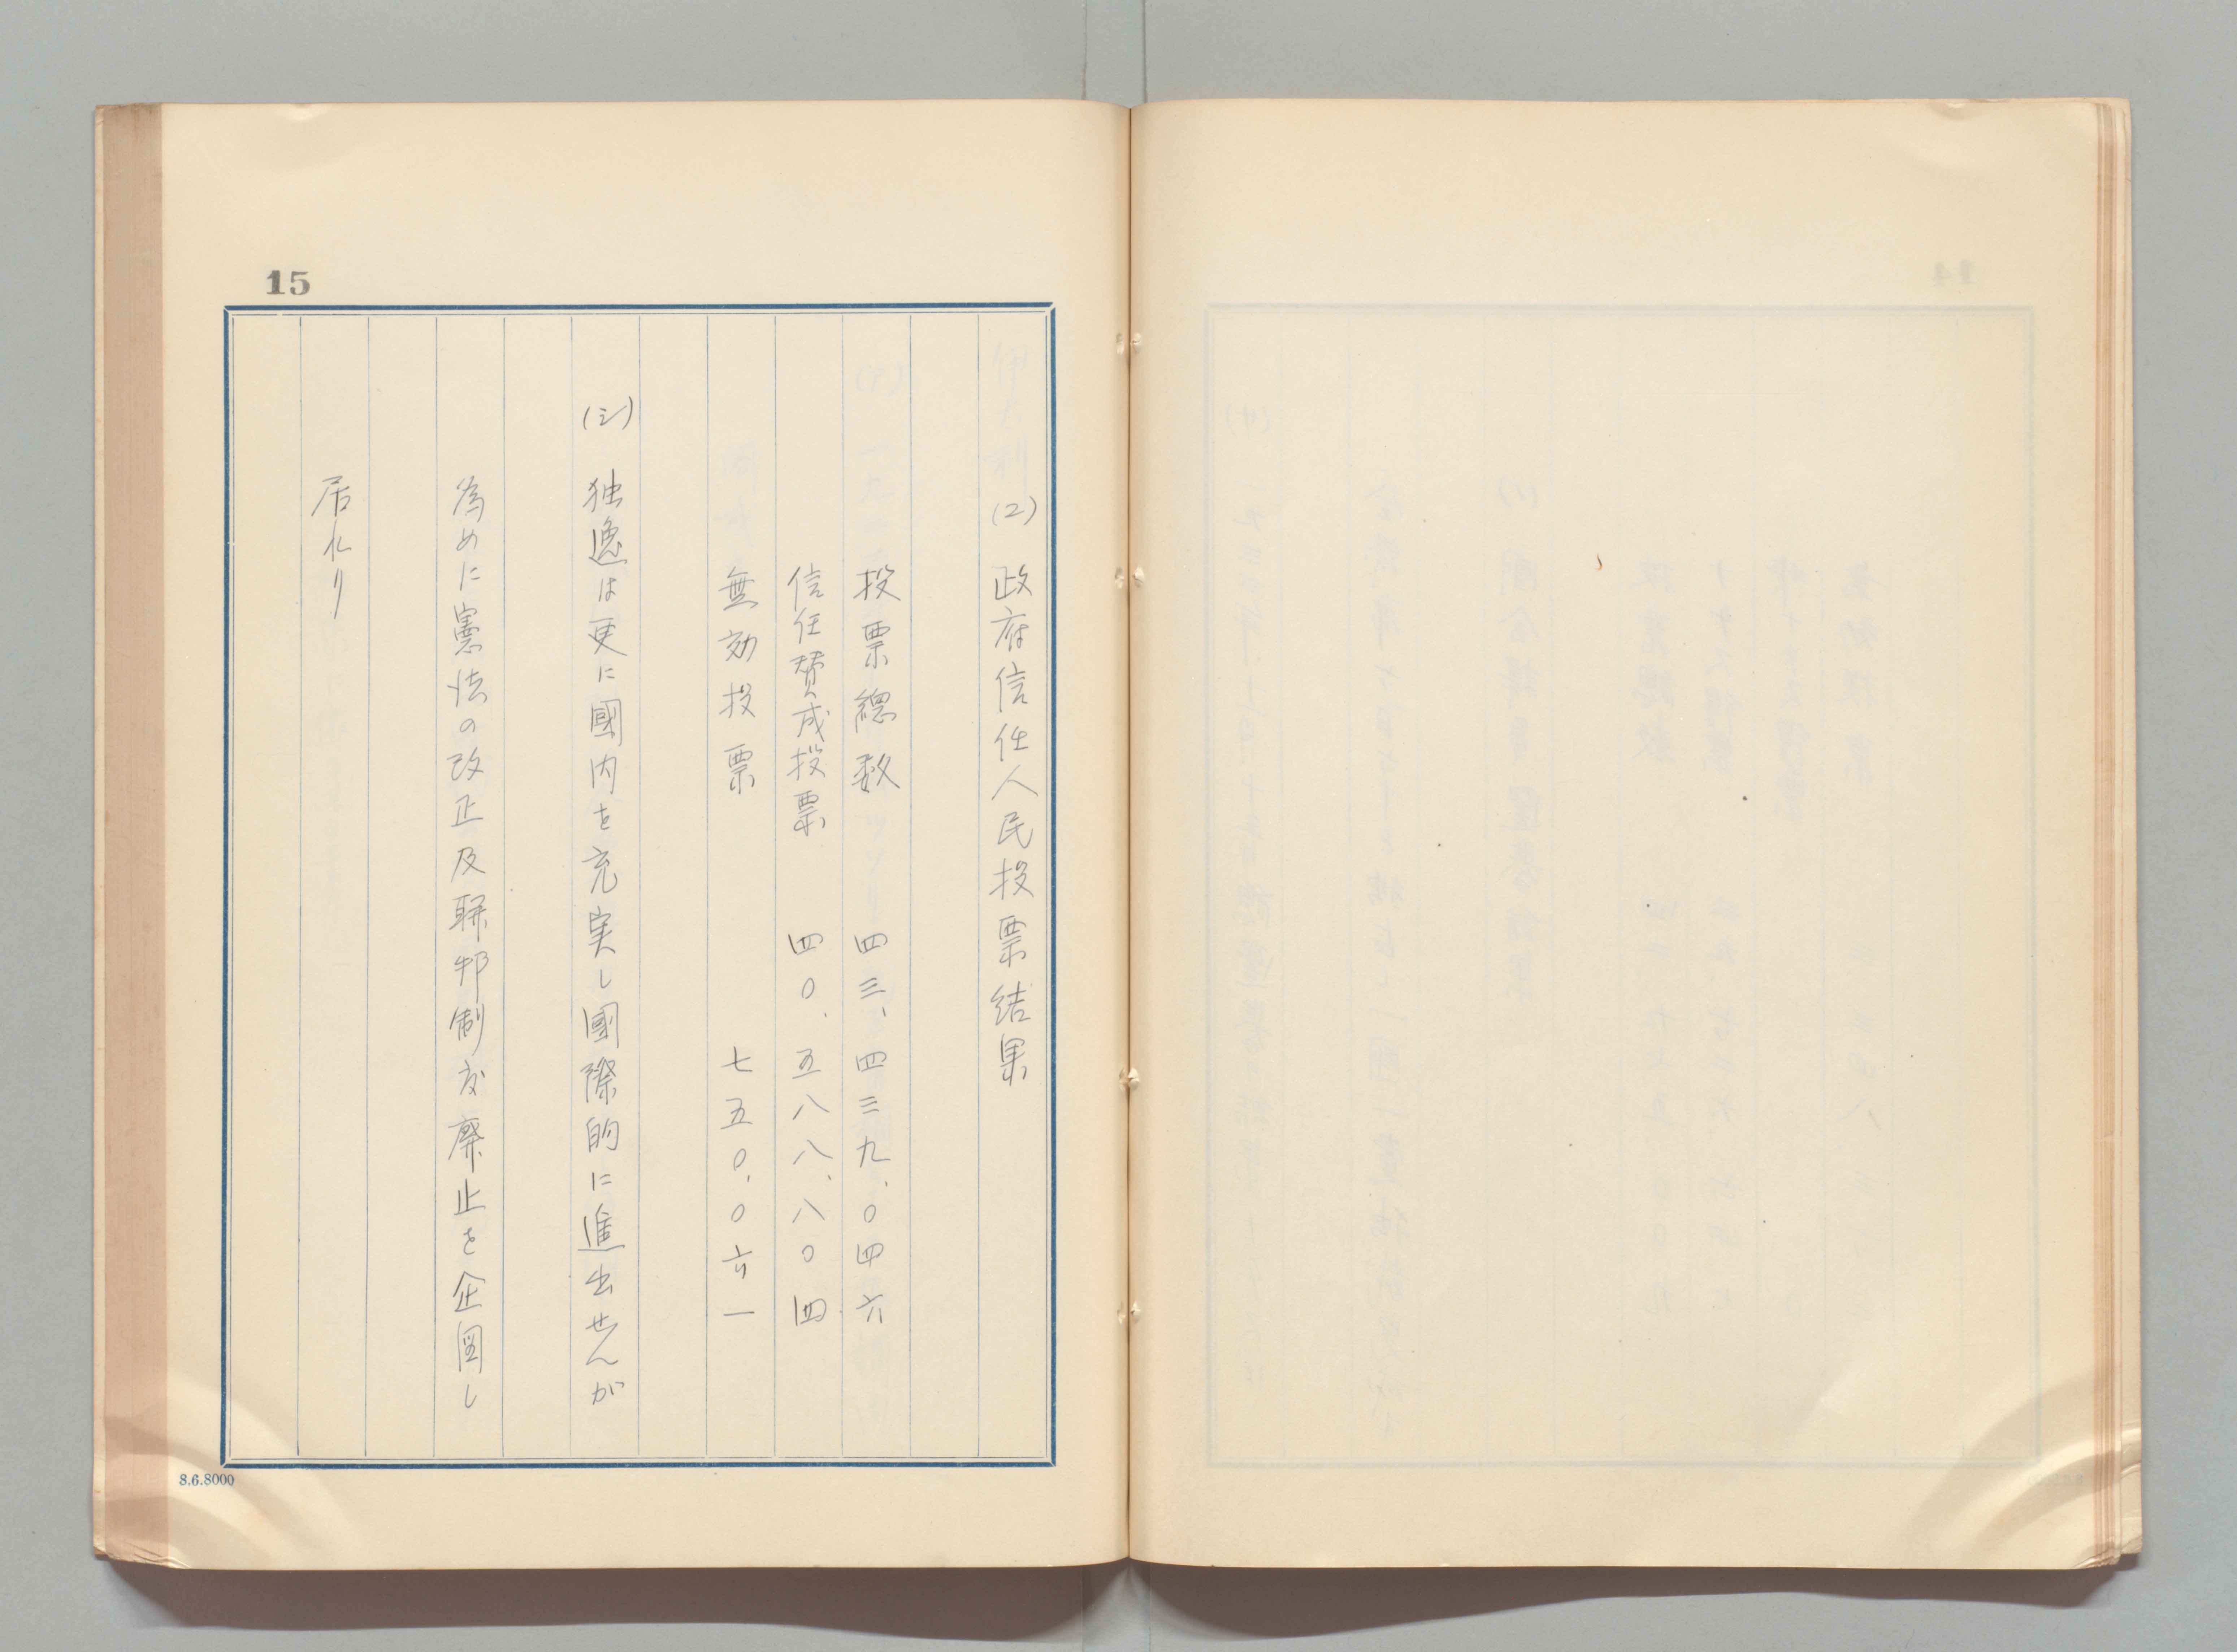 15
(2) 政府信任人民投票結果
投票總数 四三、四三九、〇四六
信任賛成投票 四〇、五八八、八〇四
無効投票 七五〇、〇六一
(シ) 独逸は更に國内を充実し國際的に進出せんが
為めに憲法の改正及聯邦制度廃止を企図し
居れり
8.6.8000